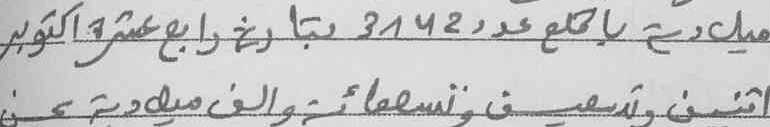 ميلادية بالمحل عدد 3142 بتاريخ رابع عشر اكتوبر
اثنين وتسعين وتسعمائة والف ميلادية عن